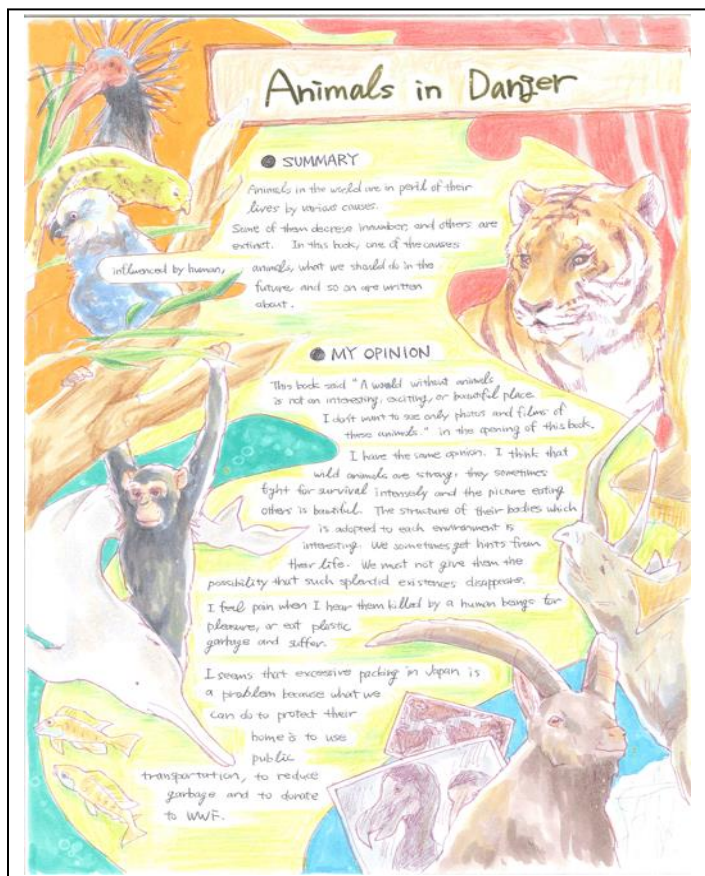 Animals in Danger
SUMMARY
Animals in the world are in peril of their
lives by various causes.
Some of them decrese innumber, and others are
extinct. In this book, one of the causes
influenced by human, animals, what we should do in the
future and so on are written
about.
MY OPINION
This book said "A would without animals
is not an interesting, exciting, or beautiful place.
I don't want to see only photos and films of
these animals." in the opening of this book.
I have the same opinion. I think that
wild animals are strong, they sometimes
fight for survival intensely and the picture eating
others is beautiful. The structure of their bodies which
is adopted to each environment is
interesting. We sometimes get hints from
their life. We must not give them the
possibility that such splendid existences disappears.
I feel pain when I hear them killed by a human beings for
pleasure, or eat plastic
garbage and suffer.
I seems that excessive packing in Japan is
a problem because what we
can do to protect their
home is to use
public
transportation, to reduce
garbage and to donate
to WWF.